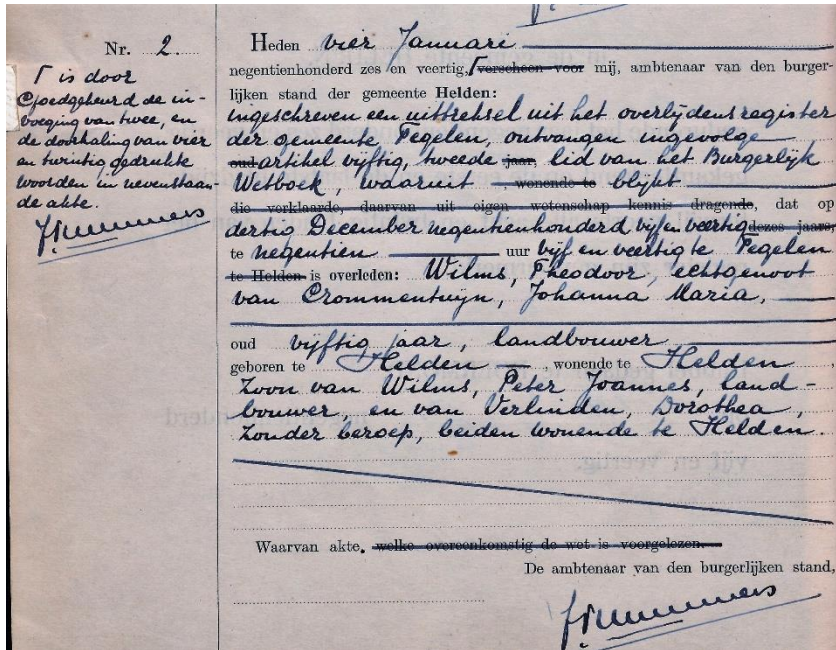 Nr. 2.
Γ is door
Goedgekeurd de in-
voeging van twee, en
de doorhaling van vier
en twintig gedrukte
woorden in nevenstaan-
de akte.
Heden vier Januari
negentienhonderd zes en veertig, Γ verscheen voor mij, ambtenaar van den burger-
lijken stand der gemeente Helden:
ingeschreven een uittreksel uit het overlijdensregister
der gemeente Tegelen, ontvangen ingevolge
oud artikel vijftig, tweede jaar, lid van het Burgerlijk
Wetboek, waaruit wonende te blijkt
die verklaarde, daarvan uit eigen wetenschap kennis dragende, dat op
dertig December negentienhonderd vijf en veertig dezes jaars,
te negentien uur vijf en veertig te Tegelen
te Helden is overleden: Wilms, Theodoor, echtgenoot
van Crommentuyn, Johanna Maria,
oud vijftig jaar, landbouwer
geboren te Helden, wonende te Helden,
zoon van Wilms, Peter Joannes, land-
bouwer, en van Verlinden, Dorothea,
zonder beroep, beiden wonende te Helden.
Waarvan akte. welke overeenkomstig de wet is voorgelezen.
De ambtenaar van den burgerlijken stand,